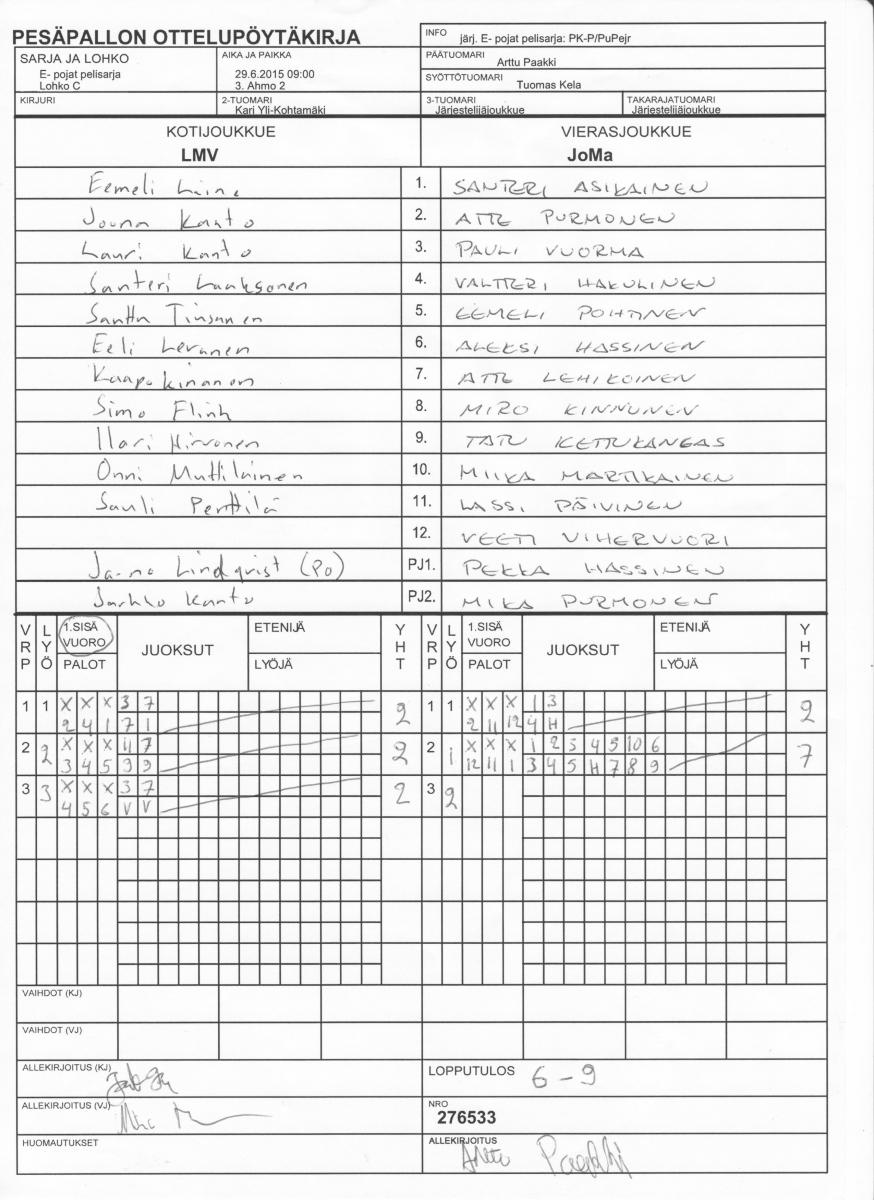 PESÄPALLON OTTELUPÖYTÄKIRJA
INFO järj. E- pojat pelisarja: PK-P/PuPejr
SARJA JA LOHKO
E- pojat pelisarja
Lohko C
AIKA JA PAIKKA
29.6.2015 09:00
3. Ahmo 2
PÄÄTUOMARI Arttu Paakki
SYÖTTÖTUOMARI Tuomas Kela
KIRJURI
2-TUOMARI Kari Yli-Kohtamäki
3-TUOMARI Järjestelijäjoukkue
TAKARAJATUOMARI Järjestelijäjoukkue
KOTIJOUKKUE VIERASJOUKKUE
LMV JoMa
Eemeli Laine 1. SANTERI ASIKAINEN
Jouna Kanto 2. ATTE PURMONEN
Lauri Kanto 3. PAULI VUORMA
Santeri Laaksonen 4. VALTTERI HAKULINEN
Santtu 5. EEMELI POHTINEN
Eeli Levanen 6. ALEKSI HASSINEN
Kaapo Kinanen 7. ATTE LEHIKOINEN
Simo Flink 8. MIRO KINNUNEN
Ilari Hirvonen 9. TATU KETTUKANGAS
Onni Muttilainen 10. MIIKA MARTIKAINEN
Sauli Perttilä 11. LASSI PÄIVINEN
12. VEETI VIHERVUORI
Jarno Lindqvist (PO) PJ1. PEKKA HASSINEN
Jarkko Kanto PJ2. MIKA PURMONEN
VRP LYÖ 1.SISÄ VUORO PALOT JUOKSUT ETENIJÄ LYÖJÄ YHT VRP LYÖ 1.SISÄ VUORO PALOT JUOKSUT ETENIJÄ LYÖJÄ YHT
1 1 X X X 3 7 2 1 1 X X X 1 3 2
2 4 1 7 1 2 11 12 4 H
2 2 X X X 4 7 2 2 1 X X X 1 2 3 4 5 10 6 7
3 4 5 9 9 12 11 1 3 4 5 H 7 8 9
3 3 X X X 3 7 2 3 2
4 5 6 V V
VAIHDOT (KJ)
VAIHDOT (VJ)
ALLEKIRJOITUS (KJ)
LOPPUTULOS 6 - 9
ALLEKIRJOITUS (VJ)
NRO
276533
HUOMAUTUKSET
ALLEKIRJOITUS Arttu Paakki